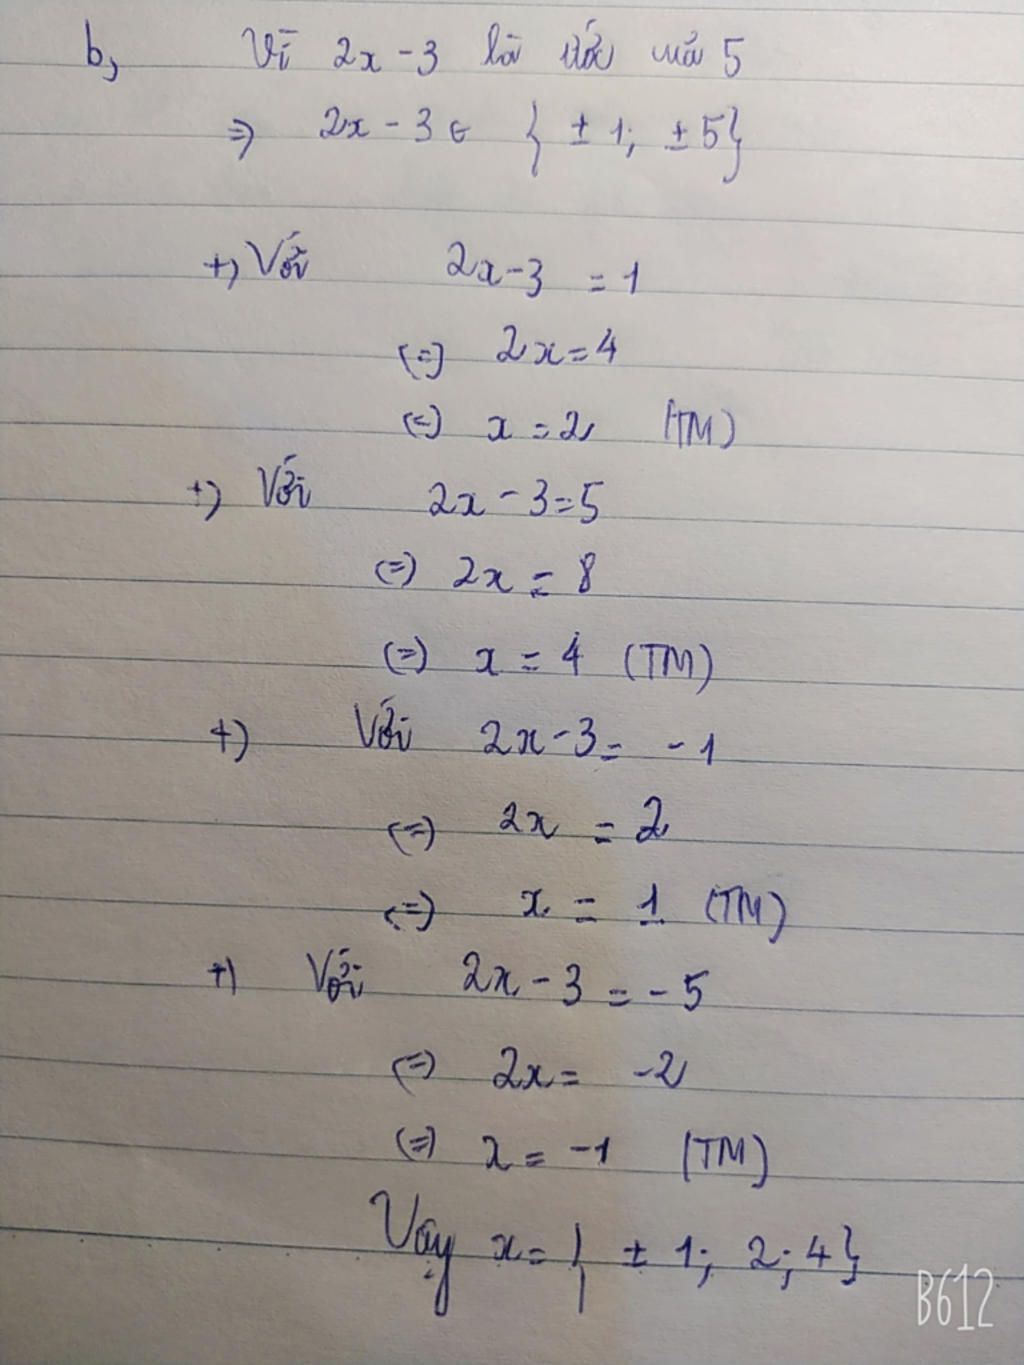 b, Vì 2x - 3 là ước của 5
=> 2x - 3 ∈ { ± 1; ± 5}
+) Với 2x - 3 = 1
(=) 2x = 4
(=) x = 2 (TM)
+) Với 2x - 3 = 5
(=) 2x = 8
(=) x = 4 (TM)
+) Với 2x - 3 = - 1
(=) 2x = 2
(=) x = 1 (TM)
+) Với 2x - 3 = - 5
(=) 2x = -2
(=) x = -1 (TM)
Vậy x = { ± 1; 2; 4}
B612